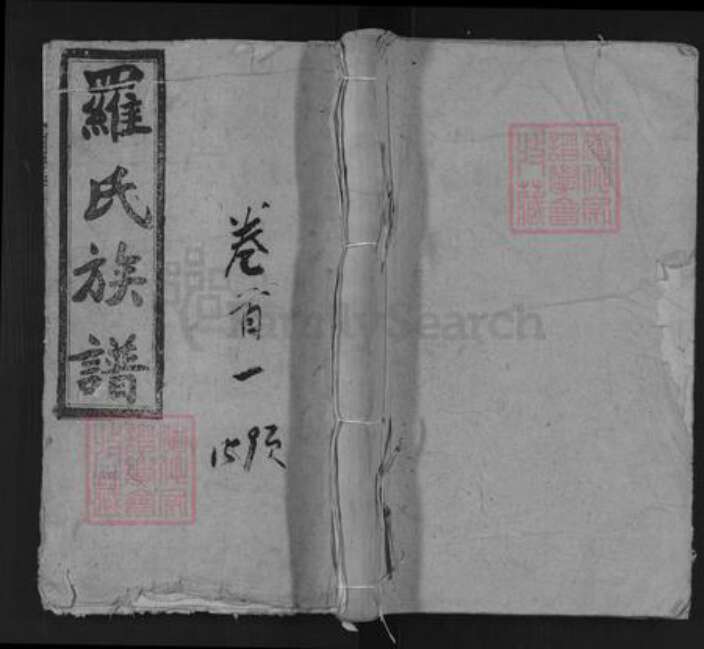 羅氏族譜
卷首一
15页
FamilySearch